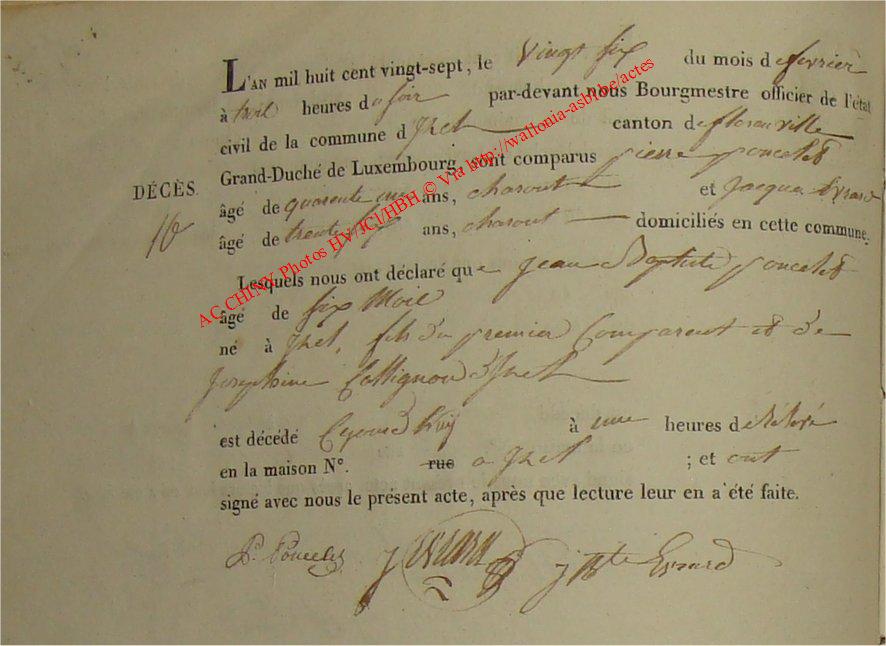 L'AN mil huit cent vingt-sept, le vingt six du mois de fevrier
à trois heures du soir par-devant nous Bourgmestre officier de l'état
civil de la commune d'Izel canton de florenville
Grand-Duché de Luxembourg, sont comparus pierre poncelet
DÉCÈS. âgé de quarente une ans, charout et Jacque Evrard
16 âgé de trente six ans, charout domiciliés en cette commune.
Lesquels nous ont déclaré que jean Baptiste poncelet
âgé de six Mois
né à Izel, fils du premier Comparent et de
Josephine Collignon d'Izel
est décédé à une heures de
en la maison N°. rue a Izel ; et ont
signé avec nous le présent acte, après que lecture leur en a été faite.
P. Poncelet J Evrard J Bte Evrard
AC CHINY, Photos HV/JCl/HBH © Via http://wallonia-asbl.be/actes